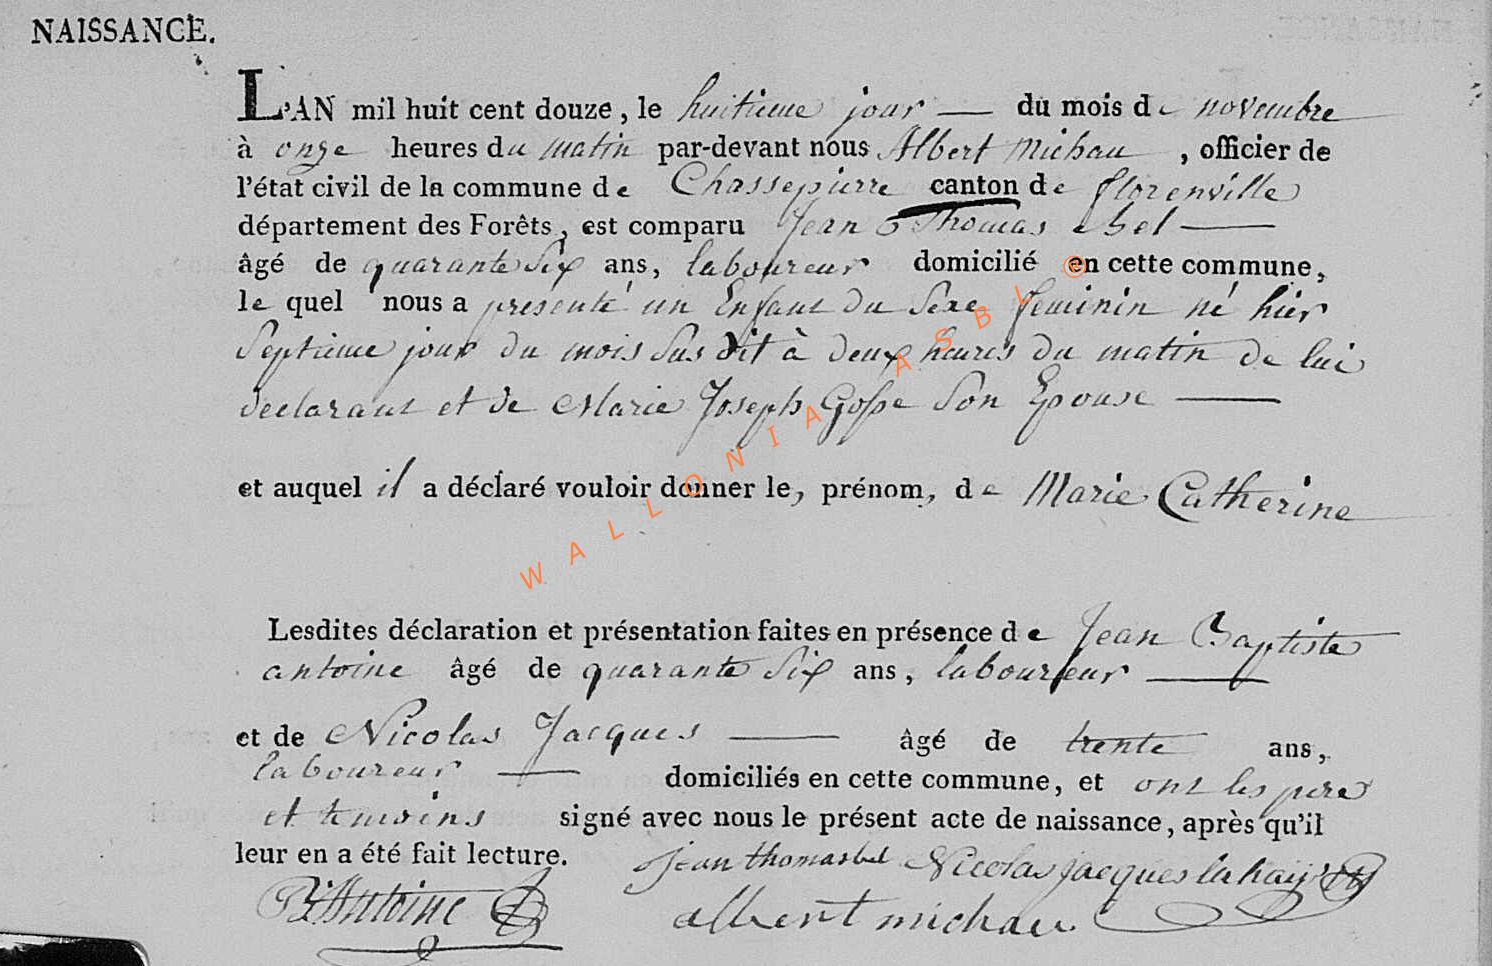 NAISSANCE.
L'AN mil huit cent douze, le huitieme jour — du mois de novembre
à onze heures du matin par-devant nous Albert Michau, officier de
l'état civil de la commune de Chassepierre canton de florenville
département des Forêts, est comparu Jean Thomas ebel —
âgé de quarante six ans, laboureur domicilié en cette commune,
le quel nous a presenté un Enfant du Sexe feminin né hier
Septieme jour du mois Sus dit à deux heures du matin de lui
declarant et de Marie Joseph Gosse Son Epouse —
et auquel il a déclaré vouloir donner le, prénom, de Marie Catherine
Lesdites déclaration et présentation faites en présence de Jean Baptiste
antoine âgé de quarante Six ans, laboureur —
et de Nicolas Jacques — âgé de trente ans,
laboureur — domiciliés en cette commune, et ont les pere
et temoins signé avec nous le présent acte de naissance, après qu'il
leur en a été fait lecture. jean thomas bel Nicolas jacques
B Antoine albert michau
WALLONIA ASBL ©